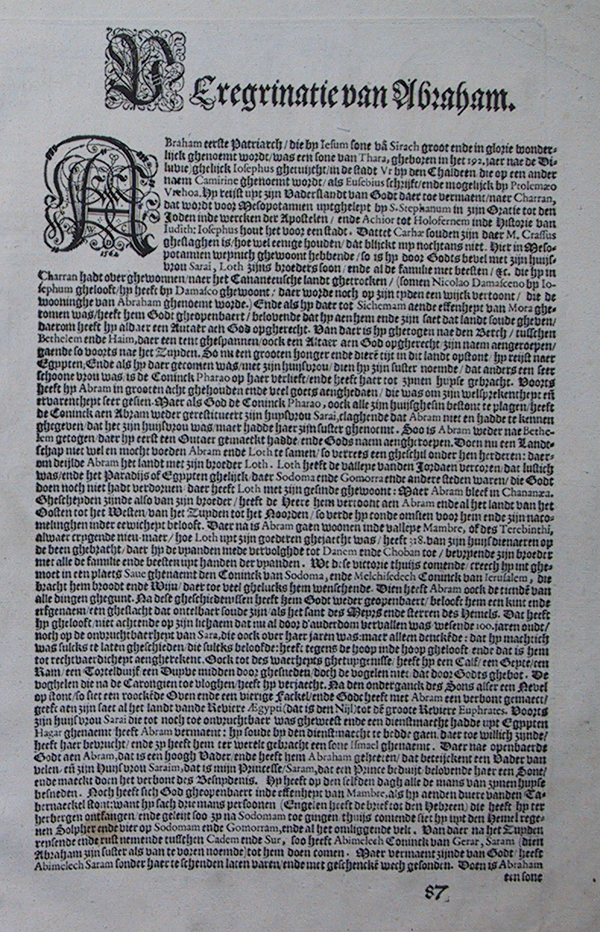 Peregrinatie van Abraham.
ABraham eerste Patriarch / die by Iesum sone vā Sirach groot ende in glorie wonder-
lijck ghenoemt wordt / was een sone van Thara, gheboren in het 192. jaer nae de Di-
luvie / ghelijck Iosephus ghetuijcht / in de stadt Vr by den Chaldeen die op een ander
naem Camirine ghenoemt wordt / als Eusebius schrijft / ende mogelijck by Prolemæo
Væhoa. Hy reijst upt zijn Vaderslandt van Godt daer toe vermaent / naer Charran,
dat wordt voor Mesopotamien uptgheleyt by S. Stephanum in zijn Oratie tot den
Joden inde wercken der Apostelen / ende Achior tot Holofernem inde Historie van
Iudith: Iosephus hout het voor een stadt. Dattet Carhæ souden zijn daer M. Crassus
gheslaghen is / hoe wel eenige houden / dat blijckt my nochtans niet. Hier in Meso-
potamien weynich ghewoont hebbende / so is hy door Godts bevel met zijn huijs-
vrou Sarai, Loth zijns broeders soon / ende al de familie met beesten / &c. die hy in
Charran hadt overghewonnen / naer het Cananeetsche landt ghetrocken / (somen Nicolao Damasceno by Io-
sephum ghelooft / hy heeft by Damasco ghewoont / daer worde noch op zijn tyden een wijck vertoont / die de
wooninghe van Abraham ghenoemt worde.) Ende als hy daer tot Sichemam aende effenheyt van Mora ghe-
comen was / heeft hem Godt gheopenbaert / belovende dat hy aen hem ende zijn saet dat landt soude gheven /
daerom heeft hy aldaer een Autaer aen God opgherecht. Van daer is hy ghetogen nae den Berch / tusschen
Bethelem ende Haim, daer een tent ghespannen / oock een Altaer aen God opgherecht zijn naem aengeroepen /
gaende so voorts nae het Zuyden. So nu een grooten honger ende diere tijt in dit landt opstont / hy reijst naer
Egypten. Ende als hy daer gecomen was / met zijn huijsvrou / dien hy zijn suster noemde / dat anders een seer
schoone vrou was / is de Coninck Pharao op haer verlieft / ende heeft haer tot zynen huyse gebracht. Voorts
heeft hy Abram in grooten acht ghehouden / ende veel goets aenghedaen / die was om zijn welsprekentheyt en
ervarentheyt seer gesien. Maer als God de Coninck Pharao, oock alle zijn huijsghesin bestont te plagen / heeft
de Coninck aen Abram weder gerestitueert zijn huysvrou Sarai, claghende dat Abram niet en hadde te kennen
ghegeven / dat het zijn huijsvrou was / maer hadde haer zijn suster ghenoemt. Soo is Abram weder nae Bethe-
lem getogen / daer hy eerst een Outaer gemaeckt hadde / ende Gods naem aengheroepen. Doen nu een Landt-
schap niet wel en mocht voeden Abram ende Loth te samen / so verrees een gheschil onder hen herderen: daer-
om deijlde Abram het landt met zijn broeder Loth. Loth heeft de valleye vanden Jordaen vercoren / dat lustich
was / ende het Paradijs of Egypten ghelijck / daer Sodoma ende Gomorra ende andere steden waren / die Godt
doen noch niet hadt verdorven / daer heeft Loth met zijn gesinde ghewoont: Maer Abram bleef in Chananæa.
Ghescheyden zijnde also van zijn broeder / heeft de Heere hem vertoont aen Abram ende al het landt van het
Oosten tot het Westen / van het Zuyden tot het Noorden / so verde hy conde omsien voor hem ende zijn naco-
melinghen inder eewicheyt belooft. Daer na is Abram gaen woonen inde valleye Mambre, of des Terebinthi,
alwaer crygende nieu-maer / hoe Loth upt zijn goederen ghejaecht was / heeft 318. van zijn huijsdienaeren op
de been ghebracht / daer hy de vyanden mede vervolghde tot Danem ende Choban toe / bevrydende zijn broeder
met alle de familie ende beesten upt handen der vyanden. Wt dese victorie thuijs comende / creech hy int ghe-
moet in een plaets Saue ghenaemt den Coninck van Sodoma, ende Melchisedech Coninck van Ierusalem, die
bracht hem broodt ende Wijn / daer toe veel ghelucks hem wenschende. Dien heeft Abram oock de tiende van
alle dingen ghegunt. Na dese gheschiedenissen heeft hem Godt weder geopenbaert / belooft hem een kint ende
erfgenaem / een gheslacht dat ontelbaer soude zijn / als het sant des Meyrs ende sterren des Hemels. Dat heeft
hy ghelooft / niet achtende op zijn lichaem dat nu al door d'ouderdom vervallen was / wesende 100. jaren oude /
noch op de onvruchtbaerheyt van Sara, die oock over haer jaren was: maer alleen denckēde: dat hy machtich
was sulcks te laten gheschieden / die sulcks beloofde: heeft tegens de hoop inde hoop ghelooft ende dat is hem
tot rechtvaerdicheyt aengherekent. Oock tot des waerheyts ghetuygenisse / heeft hy een Calf / een Geyte / een
Ram / een Torteldurf / een Duyve midden door ghesneden / doch de vogelen niet / dat door Godts ghebot. De
voghelen die na de Carongien toe vloghen / heeft hy verjaecht. Na den ondergangk des Sons alser een Nevel
op stont / so siet een roockēde Oven ende een vierige Fackel / ende Godt heeft met Abram een verbont gemaect /
geeft aen zijn saet al het landt vande Reviere Ægypti (dat is den Nijl) tot dē groote Reviere Euphrates. Voorts
zijn huijsvrou Sarai die tot noch toe onvruchtbaer was gheweest ende een dienstmaecht hadde upt Egypten
Hagar ghenaemt heeft Abram vermaent: hy soude by den dienstmaecht te bedde gaen, daer toe willich zijnde /
heeft haer bevrucht / ende zy heeft hem ter werelt gebracht een sone Ismael ghenaemt. Daer nae openbaerde
Godt aen Abram, dat is een hoogh Vader / ende heeft hem Abraham geheten / dat beteijckent een Vader van
velen / eñ zijn huijsvrou Saraim, dat is mijn Princesse / Saram, dat een Prince beduijt, belovende haer een Sone /
ende maeckt doen het verbont des Besnydenis. Hy heeft op den selfden dagh alle de mans van zynen huyse
besneden. Noch heeft sich God gheopenbaert inde effenheyt van Mambre, als hy aenden duere vanden Ta-
bernaeckel stont: want hy sach drie mans persoonen (Engelen heeft de brief tot den Hebreen) die heeft hy ter
herbergen ontfangen / ende geleijt soo zy na Sodomam toe gingen thuijs comende siet hy upt den Hemel rege-
nen Solpher ende vier op Sodomam ende Gomorram, ende al het omliggende velt. Van daer na het Zuyden
reysende ende rust nemende tusschen Cadem ende Sur, soo heeft Abimelech Coninck van Gerar, Saram (dien
Abraham zijn suster als van te voren noemde) tot hem doen comen. Maer vermaent zijnde van Godt / heeft
Abimelech Saram sonder haer te schenden laten varen / ende met geschencke wech gesonden. Doen is Abraham
een sone
87.